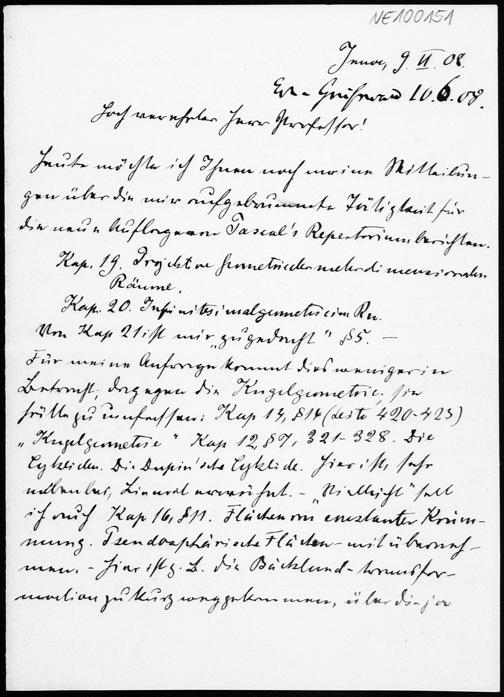 NE100151
Jena, 9. VI. 08.
10. 6. 08.
Hoch verehrter Herr Professor!
Heute möchte ich Ihnen noch meine Mitteilun-
gen über die mir aufgebrummte Tätigkeit für
die neue Auflage von Pascal's Repertorium berichten.
Kap. 19. Projektive Geometrie der mehrdimensionalen
Räume.
Kap. 20. Infinitesimalgeometrie im Rn.
Von Kap 21 ist mir "zugedacht" §5. —
Für meine Anfrage kommt dies weniger in
Betracht, dagegen die Kugelgeometrie; sie
hätte zu umfassen: Kap 14, §14 (Seite 420-423)
„Kugelgeometrie" Kap 12, §7, 321-328. Die
Cykliden. Die Dupin'sche Cyklide. Hier ist, sehr
nebenbei, Einmal erwähnt. – „Vielleicht" soll
ich auch Kap 16, §11. Flächen von constanter Krüm-
mung. Pseudosphärische Flächen – mit überneh-
men. – Hier ist z. B. die Bäcklund-transfor-
mation zu kurz weggekommen, über die ja